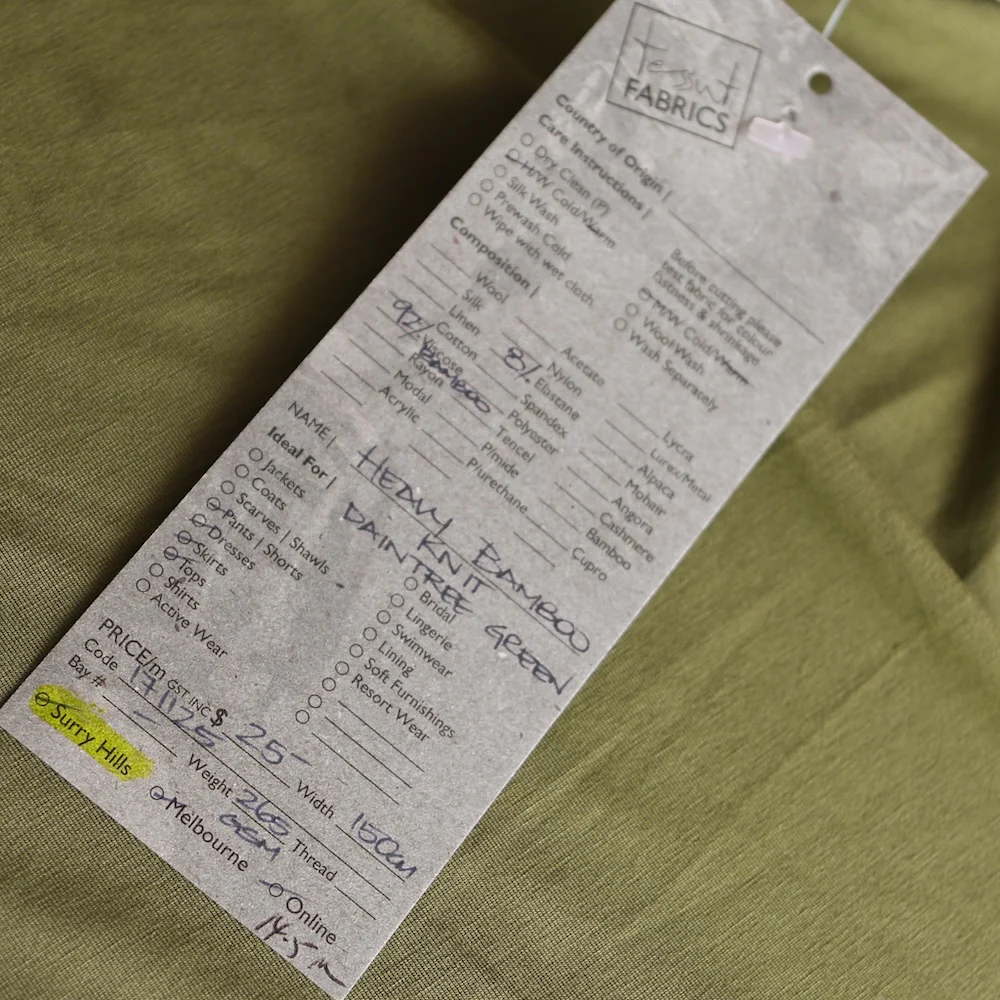 Tessuti
FABRICS
Country of Origin |
Care Instructions |
Dry Clean (P)
H/W Cold/Warm
Silk Wash
Prewash Cold
Wipe with wet cloth
Before cutting please
test fabric for colour
fastness & shrinkage
M/W Cold/Warm
Wool Wash
Wash Separately
Composition |
Wool
Silk
Linen
Cotton
92% Viscose
BAMBOO
Rayon
Modal
Acrylic
Acetate
Nylon
8% Elastane
Spandex
Polyester
Tencel
P/mide
P/urethane
Lycra
Lurex/Metal
Alpaca
Mohair
Angora
Cashmere
Bamboo
Cupro
NAME | HEAVY BAMBOO
KNIT
DAINTREE GREEN
Ideal For |
Jackets
Coats
Scarves | Shawls
Pants | Shorts
Dresses
Skirts
Tops
Shirts
Active Wear
Bridal
Lingerie
Swimwear
Lining
Soft Furnishings
Resort Wear
PRICE/m GST INC $ 25-
Code 171125
Width 150cm
Bay # -
Weight 265
GSM
Thread
Surry Hills
Melbourne
Online
14.5m